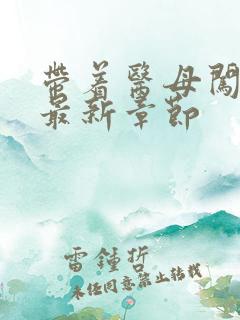 带着医母闖
最新章節
雷鍾哲
未经同意禁止转载